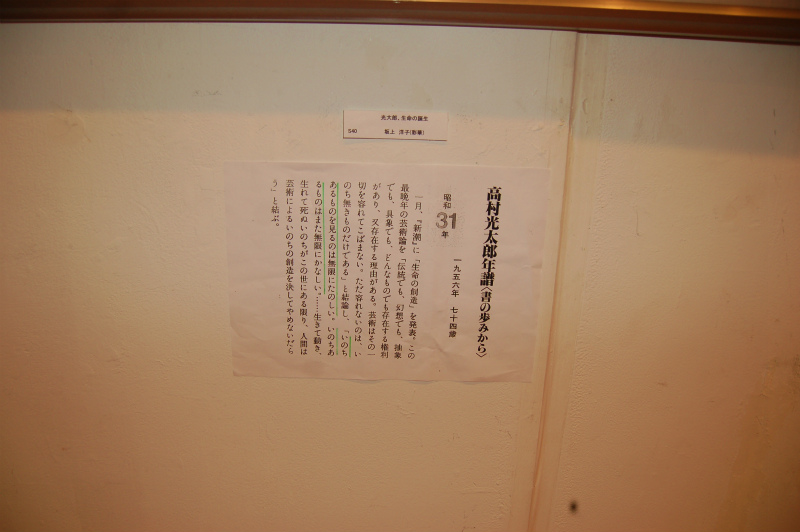 光太郎、生命の誕生
S40 坂上 洋子(彩華)
高村光太郎年譜〈書の歩みから〉
昭和31年
一九五六年 七十四歳
一月、『新潮』に「生命の創造」を発表。この
最晩年の芸術論を「伝統でも、幻想でも、抽象
でも、具象でも、どんなものでも存在する権利
があり、又存在する理由がある。芸術はその一
切を容れてこばまない。ただ容れないのは、い
のち無きものだけである」と結論し、「いのち
あるものを見るのは無限にたのしい。いのちあ
るものはまた無限にかなしい。……生きて動き、
生れて死ぬいのちがこの世にある限り、人間は
芸術によるいのちの創造を決してやめないだら
う」と結ぶ。